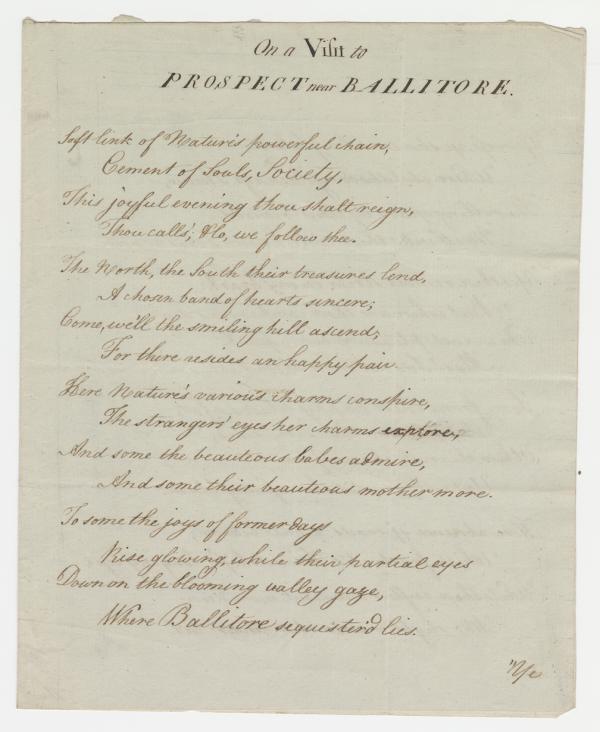 On a Viſit to
PROSPECT near BALLITORE.
Soft link of Nature's powerful chain,
Cement of Souls, Society,
This joyful evening thou shalt reign,
Thou call'st; & lo, we follow thee.
The North, the South their treasures lend,
A chosen band of hearts sincere;
Come, we'll the smiling hill ascend,
For there resides an happy pair.
Here Nature's various charms conspire,
The strangers' eyes her charms explore,
And some the beauteous babes admire,
And some their beauteous mother more.
To some the joys of former days
Rise glowing, while their partial eyes
Down on the blooming valley gaze,
Where Ballitore sequester'd lies.
"Ye